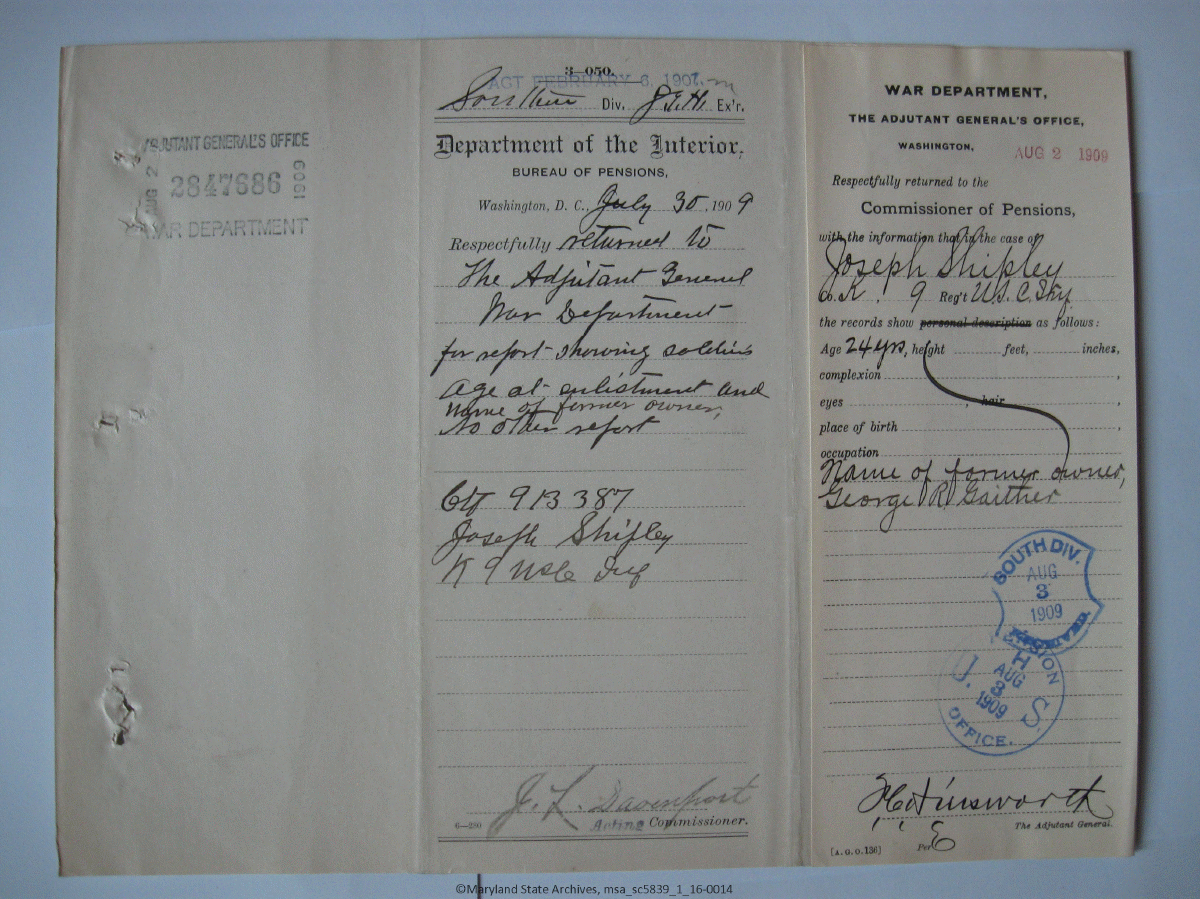 ADJUTANT GENERAL'S OFFICE
AUG 2
2847686
1909
WAR DEPARTMENT
3—050.
ACT FEBRUARY 6, 1907.
Southern Div. J.E.H. Ex'r.
Department of the Interior,
BUREAU OF PENSIONS,
Washington, D. C., July 30, 1909
Respectfully returned to
The Adjutant General
War Department
for report showing soldier's
age at enlistment and
name of former owner,
No other report
Ctf 913387
Joseph Shipley
K 9 USC Inf
J. L. Davenport
6—280 Acting Commissioner.
WAR DEPARTMENT,
THE ADJUTANT GENERAL'S OFFICE,
WASHINGTON, AUG 2 1909
Respectfully returned to the
Commissioner of Pensions,
with the information that in the case of
Joseph Shipley
Co. K. 9 Reg't U.S.C. Inf.
the records show personal description as follows:
Age 24 yrs, height feet, inches,
complexion ,
eyes , hair ,
place of birth ,
occupation
Name of former owner,
George R. Gaither
SOUTH DIV.
AUG
3
1909
PENSION
H
AUG
3
1909
U. S.
OFFICE.
F.C. Ainsworth
The Adjutant General.
[A.G.O. 136] Per E
©Maryland State Archives, msa_sc5839_1_16-0014